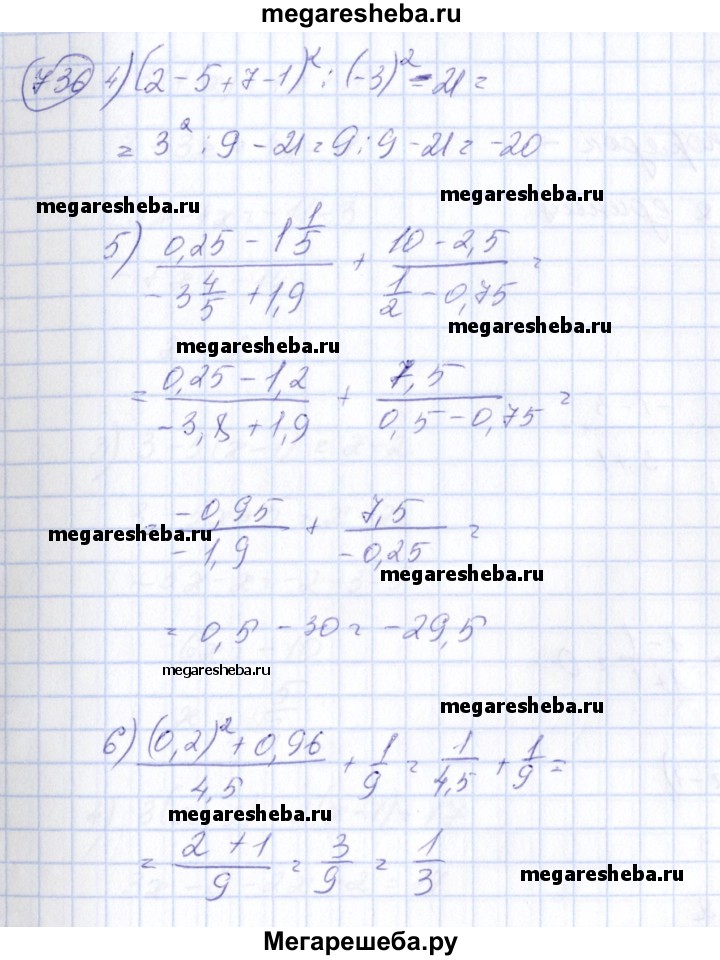 megaresheba.ru
736 4) (2 - 5 + 7 - 1)² : (-3)² - 21 =
= 3² : 9 - 21 = 9 : 9 - 21 = -20
megaresheba.ru
megaresheba.ru
5) (0,25 - 1 1/5)/(-3 4/5 + 1,9) + (10 - 2,5)/(1/2 - 0,75) =
megaresheba.ru
megaresheba.ru
= (0,25 - 1,2)/(-3,8 + 1,9) + 7,5/(0,5 - 0,75) =
= -0,95/-1,9 + 7,5/-0,25 =
megaresheba.ru
megaresheba.ru
= 0,5 - 30 = -29,5
megaresheba.ru
megaresheba.ru
6) ((0,2)² + 0,96)/4,5 + 1/9 = 1/4,5 + 1/9 =
megaresheba.ru
= (2 + 1)/9 = 3/9 = 1/3
megaresheba.ru
Мегарешеба.ру